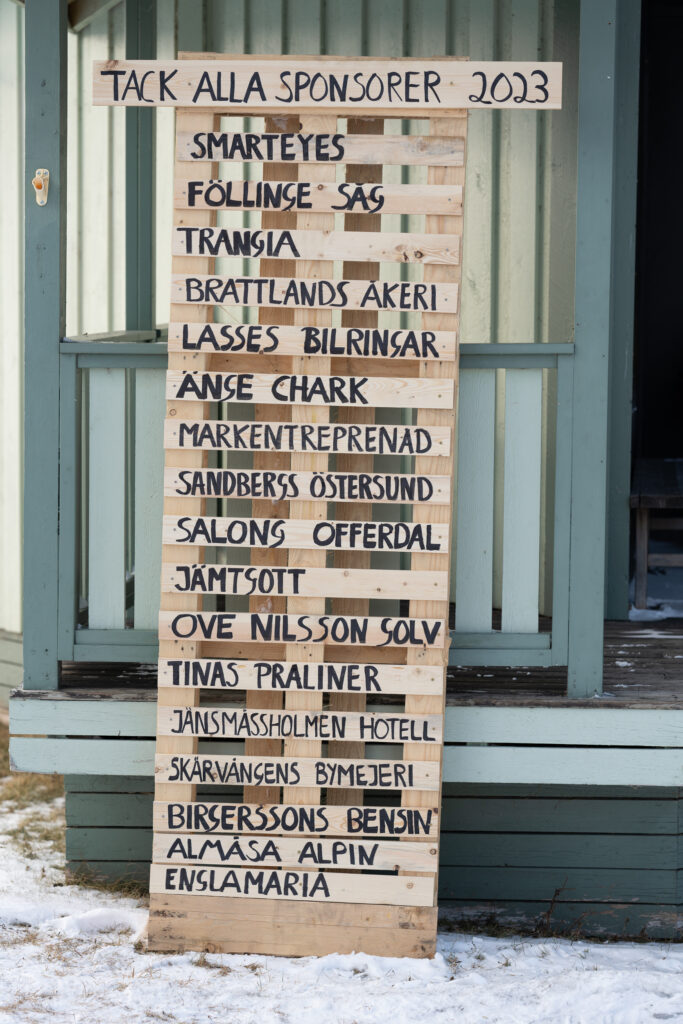 TACK ALLA SPONSORER 2023
SMARTEYES
FÖLLINGE SÅG
TRANGIA
BRATTLANDS ÅKERI
LASSES BILRINGAR
ÄNGE CHARK
MARKENTREPRENAD
SANDBERGS ÖSTERSUND
SALONG OFFERDAL
JÄMTGOTT
OVE NILSSON GOLV
TINAS PRALINER
JÄNSMÄSSHOLMEN HOTELL
SKÄRVÅNGENS BYMEJERI
BIRGERSSONS BENSIN
ALMÅSA ALPIN
ENGLAMARIA